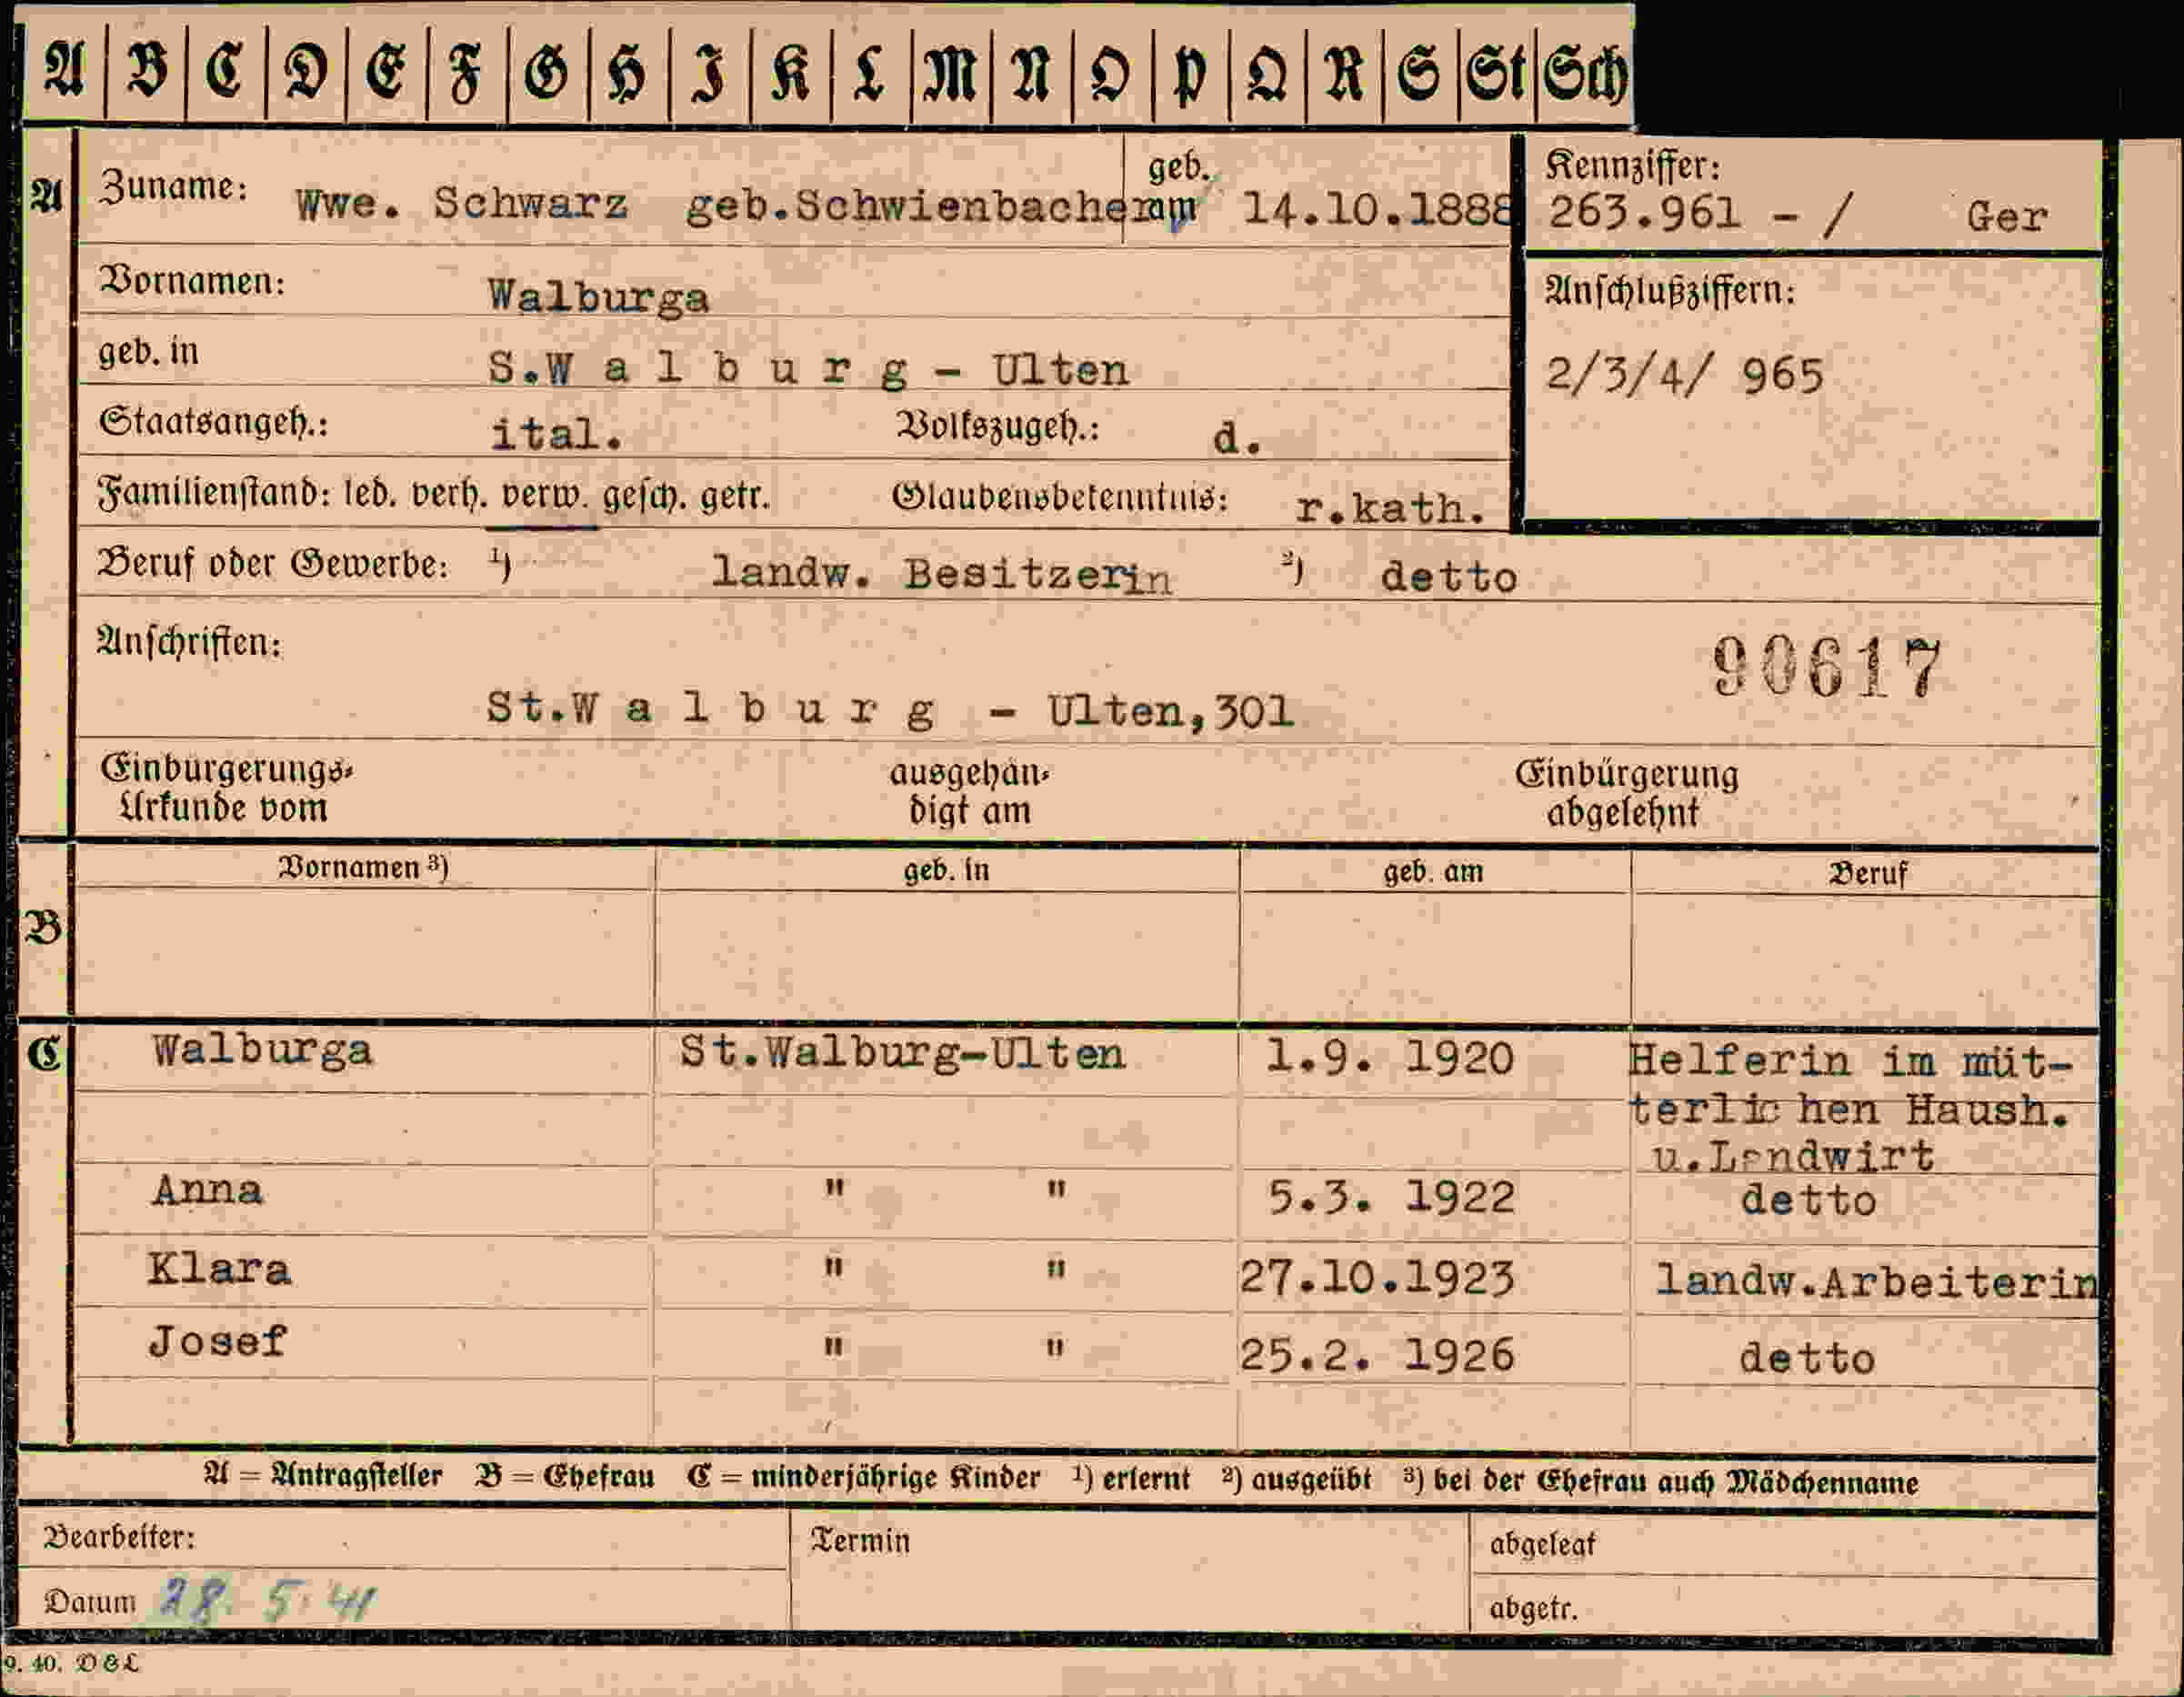 A B C D E F G H I K L M N O P Q R S St Sch
A Zuname: Wwe. Schwarz geb.Schwienbacher geb. am 14.10.1888
Kennziffer:
263.961 - / Ger
Vornamen: Walburga
Anschlußziffern:
geb. in S.W a l b u r g - Ulten
2/3/4/ 965
Staatsangeh.: ital. Volkszugeh.: d.
Familienstand: led. verh. verw. gesch. getr. Glaubensbekenntnis: r.kath.
Beruf oder Gewerbe: 1) landw. Besitzerin 2) detto
Anschriften:
90617
St.W a l b u r g - Ulten,301
Einbürgerungs-
Urkunde vom
ausgehän-
digt am
Einbürgerung
abgelehnt
Vornamen 3) geb. in geb. am Beruf
B
C Walburga St.Walburg-Ulten 1.9. 1920 Helferin im müt-
terlic hen Haush.
u.Landwirt
Anna " " 5.3. 1922 detto
Klara " " 27.10.1923 landw.Arbeiterin
Josef " " 25.2. 1926 detto
A = Antragsteller B = Ehefrau C = minderjährige Kinder 1) erlernt 2) ausgeübt 3) bei der Ehefrau auch Mädchenname
Bearbeiter: Termin abgelegt
Datum 28. 5. 41 abgetr.
9. 40. D & L